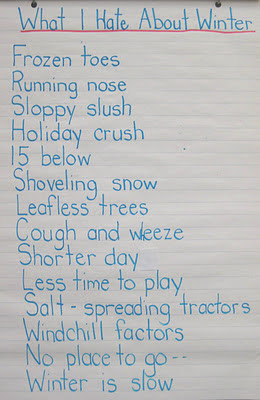 What I Hate About Winter
Frozen toes
Running nose
Sloppy slush
Holiday crush
15 below
Shoveling snow
Leafless trees
Cough and wheeze
Shorter day
Less time to play
Salt-spreading tractors
Windchill factors
No place to go--
Winter is slow